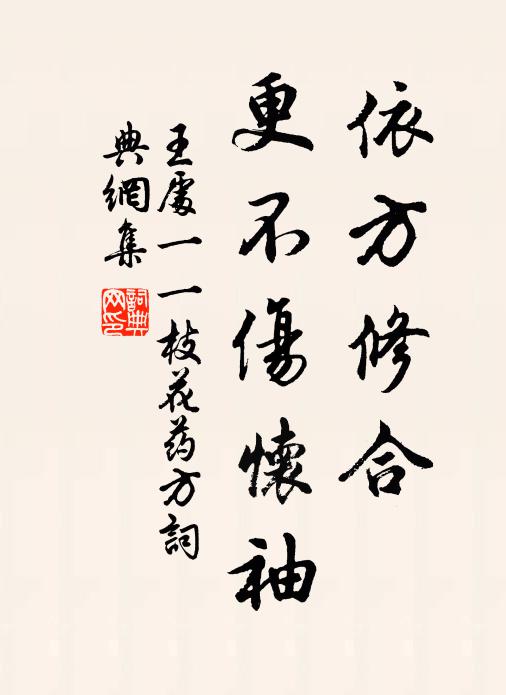 依方修合
更不傷懷袖
王處一一枝花药方詞
典網集
詞典网印